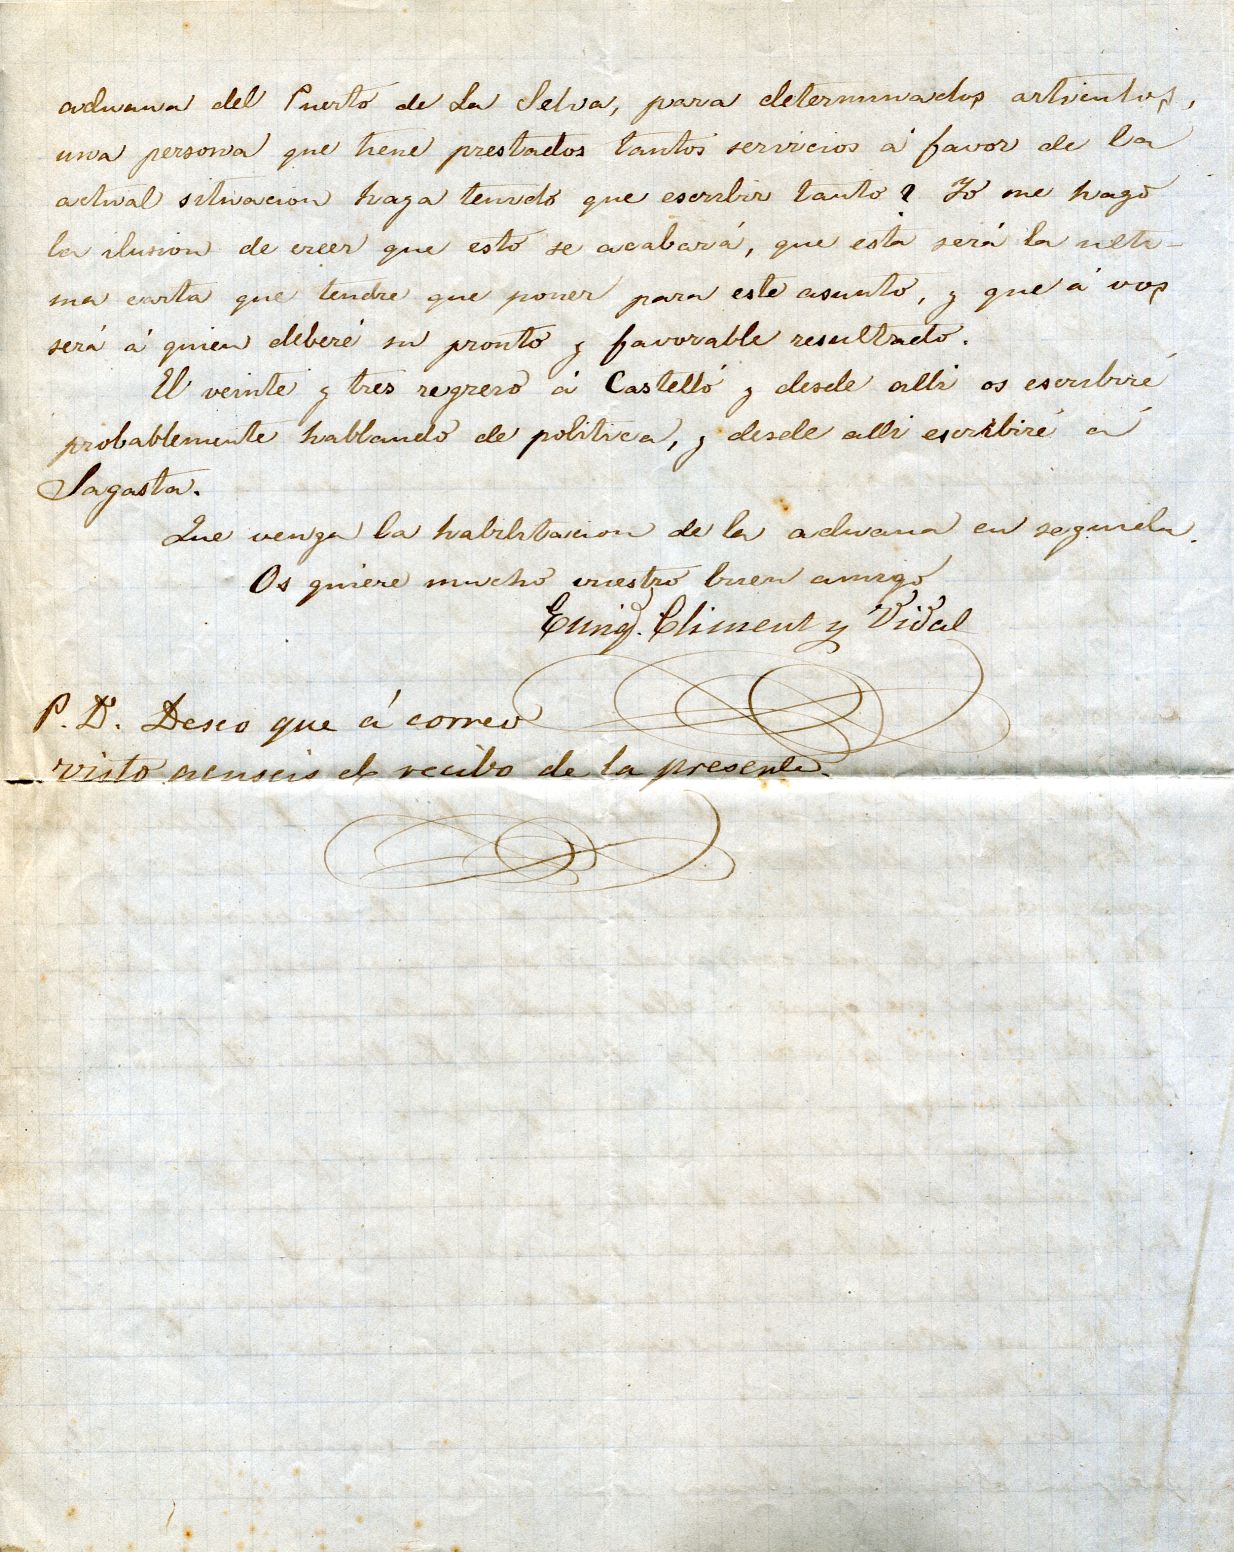 aduana del Puerto de La Selva, para determinados articulos,
una persona que tiene prestados tantos servicios á favor de la
actual situacion haya tenido que escribir tanto? Yo me hago
la ilusion de creer que esto se acabará, que esta será la ulti-
ma carta que tendre que poner para este asunto, y que á vos
será á quien deberé su pronto y favorable resultado.
El veinte y tres regreso á Castelló y desde alli os escribiré
probablemente hablando de politica, y desde alli escribiré á
Sagasta.
Que venga la habilitacion de la aduana en seguida.
Os quiere mucho vuestro buen amigo
Enriq. Climent y Vidal
P. D. Deseo que á correo
visto acuseis el recibo de la presente.